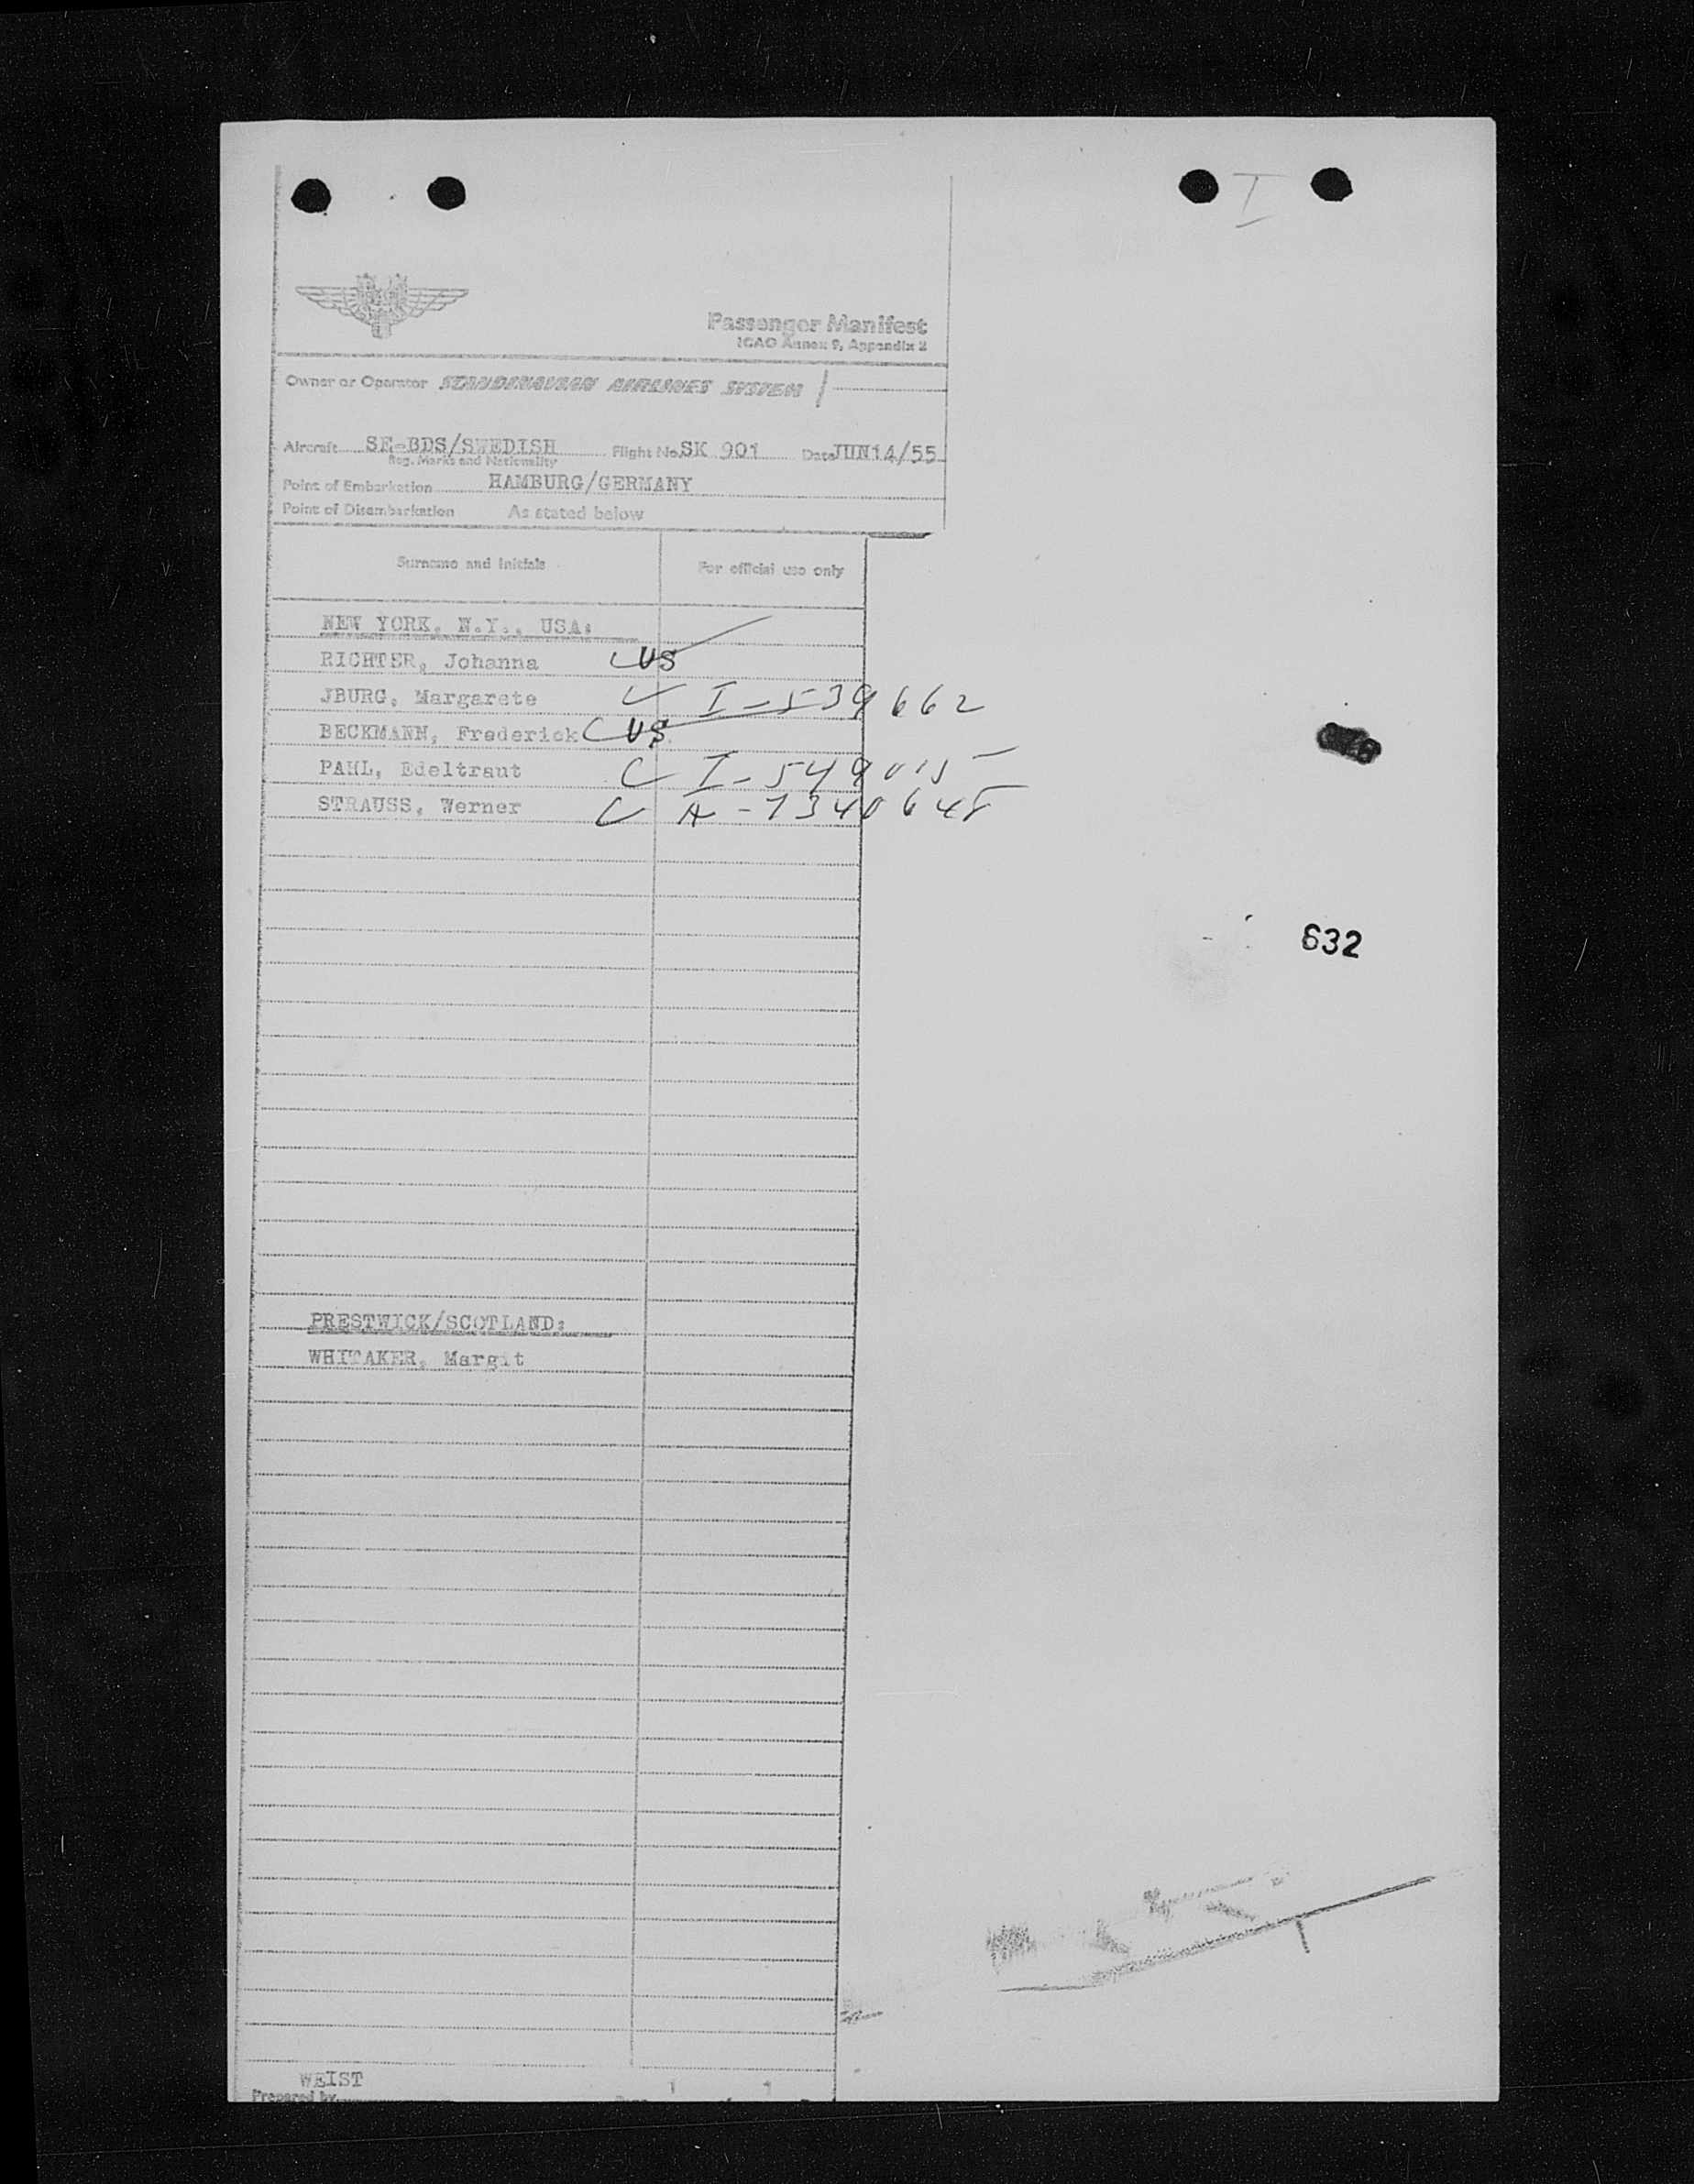 I
Passenger Manifest
ICAO Annex 9, Appendix 2
Owner or Operator SCANDINAVIAN AIRLINES SYSTEM
Aircraft SE-BDS/SWEDISH Flight No. SK 901 Date JUN14/55
Reg. Marks and Nationality
Point of Embarkation HAMBURG/GERMANY
Point of Disembarkation As stated below
Surname and Initials For official use only
NEW YORK, N.Y., USA:
RICHTER, Johanna US
JBURG, Margarete I-539662
BECKMANN, Frederick US
PAHL, Edeltraut I-549015
STRAUSS, Werner A-7340648
632
PRESTWICK/SCOTLAND:
WHITAKER, Margit
WEIST
Prepared by 1 1